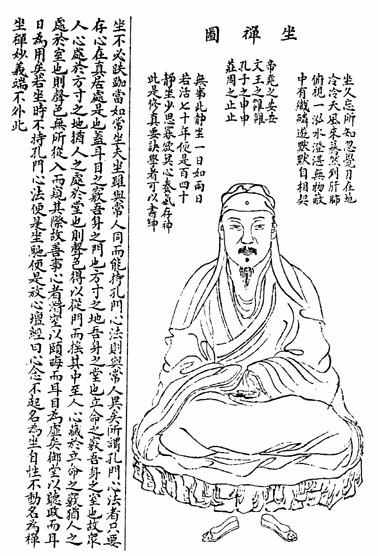 坐禪圖
坐久忘所知忽覺月在地
冷冷天風來驀然到肝肺
俯視一泓水澄湛無物蔽
中有纖鱗遊默默自相契
帝堯之安安
文王之雝雝
孔子之申申
莊周之止止
無事此靜坐一日如兩日
若活七十年便是百四十
靜坐少思寡欲冥心養氣存神
此是修真要訣學者可以書紳
坐不必趺跏當如常坐夫坐雖與常人同而能持孔門心法則與常人異矣所謂孔門心法者只要
存心在真居處是也蓋耳目之竅吾身之門也方寸之地吾身之堂也立命之竅吾身之室也故眾
人心處於方寸之地猶人之處於堂也則聲色得以從門而搖其中至人心藏於立命之竅猶人之
處於室也則聲色無所從入而窺其際故善事心者潛室以頤晦而耳目為虛矣御堂以聽政而耳
目為用矣若坐時不持孔門心法便是坐馳便是放心壇經曰心念不起名為坐自性不動名為禪
坐禪妙義端不外此